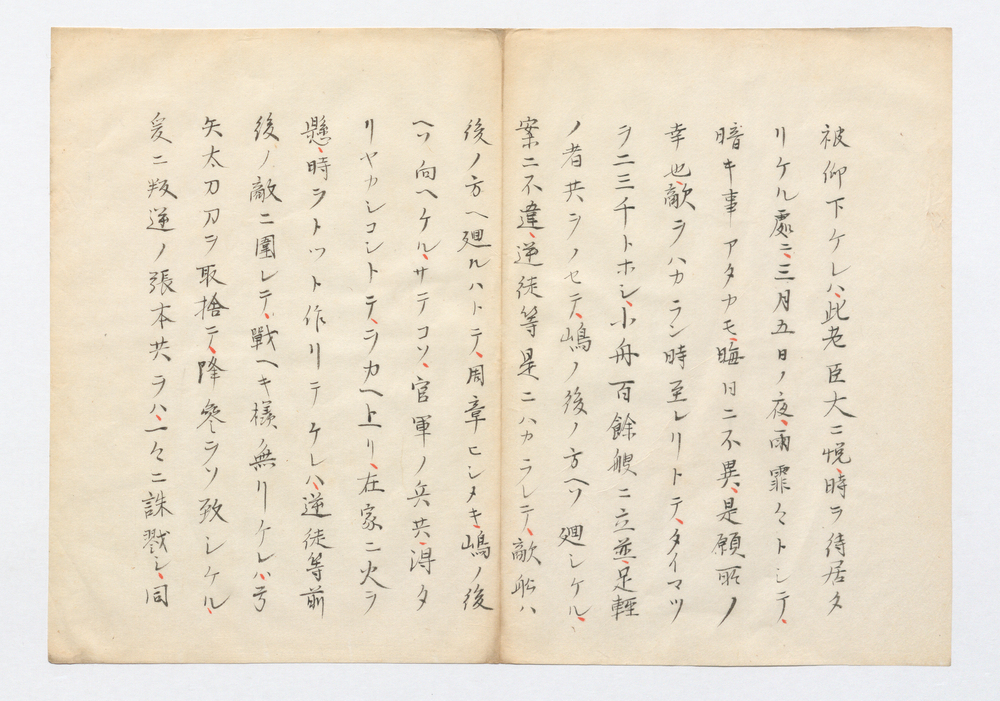 被仰下ケレハ、此老臣大ニ悦、時ヲ待居タ
リケル處ニ、三月五日ノ夜、雨霏々トシテ、
暗キ事アタカモ、晦日ニ不異、是願所ノ
幸也、敵ヲハカラン時至レリトテ、タイマツ
ヲ二三千トホシ、小舟百餘艘ニ立並、足輕
ノ者共ヲノセテ、嶋ノ後ノ方ヘソ廻シケル、
案ニ不違、逆徒等是ニハカラレテ、敵船ハ
後ノ方ヘ廻ルハトテ、周章ヒシメキ、嶋ノ後
ヘソ向ヘケル、サテコソ、官軍ノ兵共、得タ
リヤカシコシトテ、ヲカヘ上リ、在家ニ火ヲ
懸、時ヲトツト作リテケレハ、逆徒等前
後ノ敵ニ圍レテ、戰ヘキ樣無リケレハ、弓
矢太刀刀ヲ取捨テ、降參ヲソ致シケル、
爰ニ叛逆ノ張本共ヲハ、一々ニ誅戮シ、同